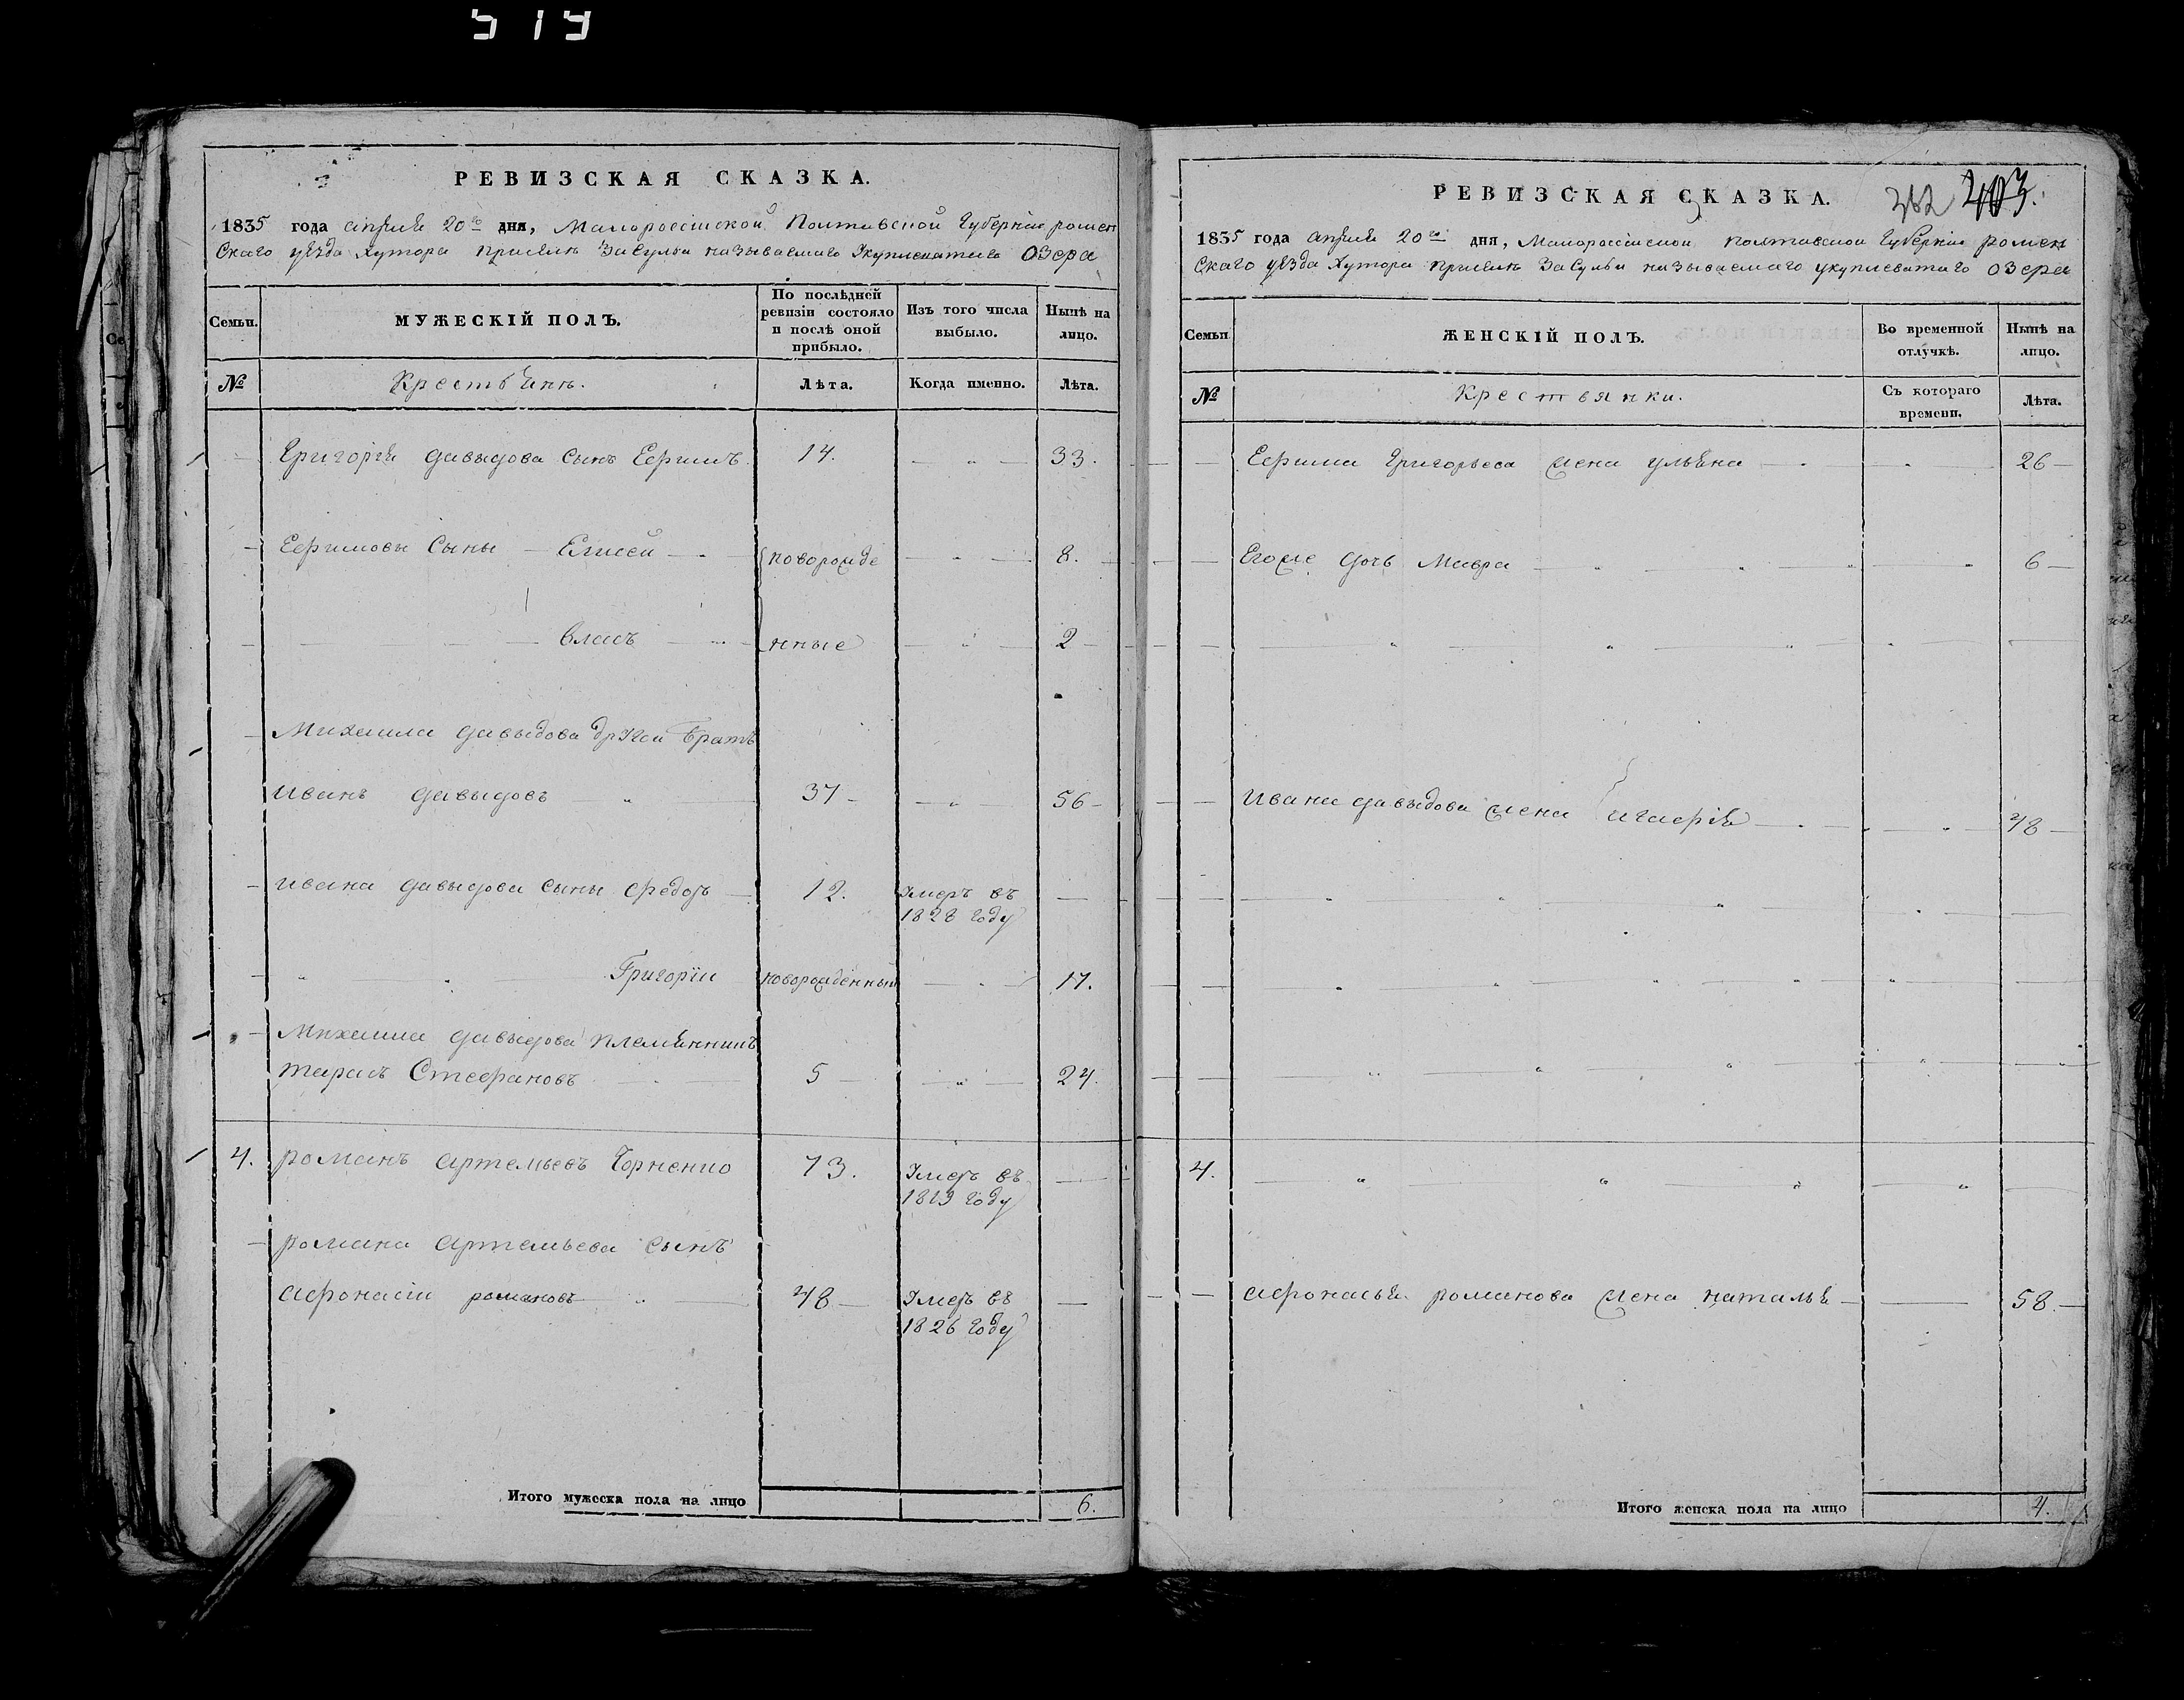 519
РЕВИЗСКАЯ СКАЗКА.
1835 года апреля 20го дня, Малороссiйской Полтавской Губернiи ромен
Скаго уезда Хутора Засулья называемаго Озера
Семьи.
МУЖЕСКIЙ ПОЛЪ.
По послѣдней ревизiи состояло и послѣ оной прибыло.
Изъ того числа выбыло.
Нынѣ на лицо.
№
Крестьяне.
Лѣта.
Когда именно.
Лѣта.
Григорiя давыдова Сынъ Ефримъ 14. 33.
Ефримовы Сыны Елисей новорожде 8.
Власъ нные 2
Михаила давыдова другой Братъ
иванъ давыдовъ 37 56
ивана давыдова сыны Федоръ 12. Умеръ въ
1828 Году
Григорiи новорожденный 17.
Михаила давыдова племянникъ
тарасъ Стефановъ 5 24.
4. романъ артемьевъ 73. Умеръ въ
1819 Году
романа артемьева сынъ
афонасiи романовъ 48 Умеръ въ
1826 Году
Итого мужеска пола на лицо 6.
РЕВИЗСКАЯ СКАЗКА.
362 403.
1835 года апреля 20го дня, Малороссiйской полтавской Губернiи ромен
Скаго уезда Хутора Засулья называемаго озера
Семьи
ЖЕНСКIЙ ПОЛЪ.
Во временной отлучкѣ.
Нынѣ на лицо.
№
Крестьянки.
Съ котораго времени.
Лѣта.
Ефрима Григорьева жена ульяна 26
Егоже дочь Мавра 6
ивана давыдова жена 48
4.
афонасья романова жена наталья 58.
Итого женска пола на лицо 4.